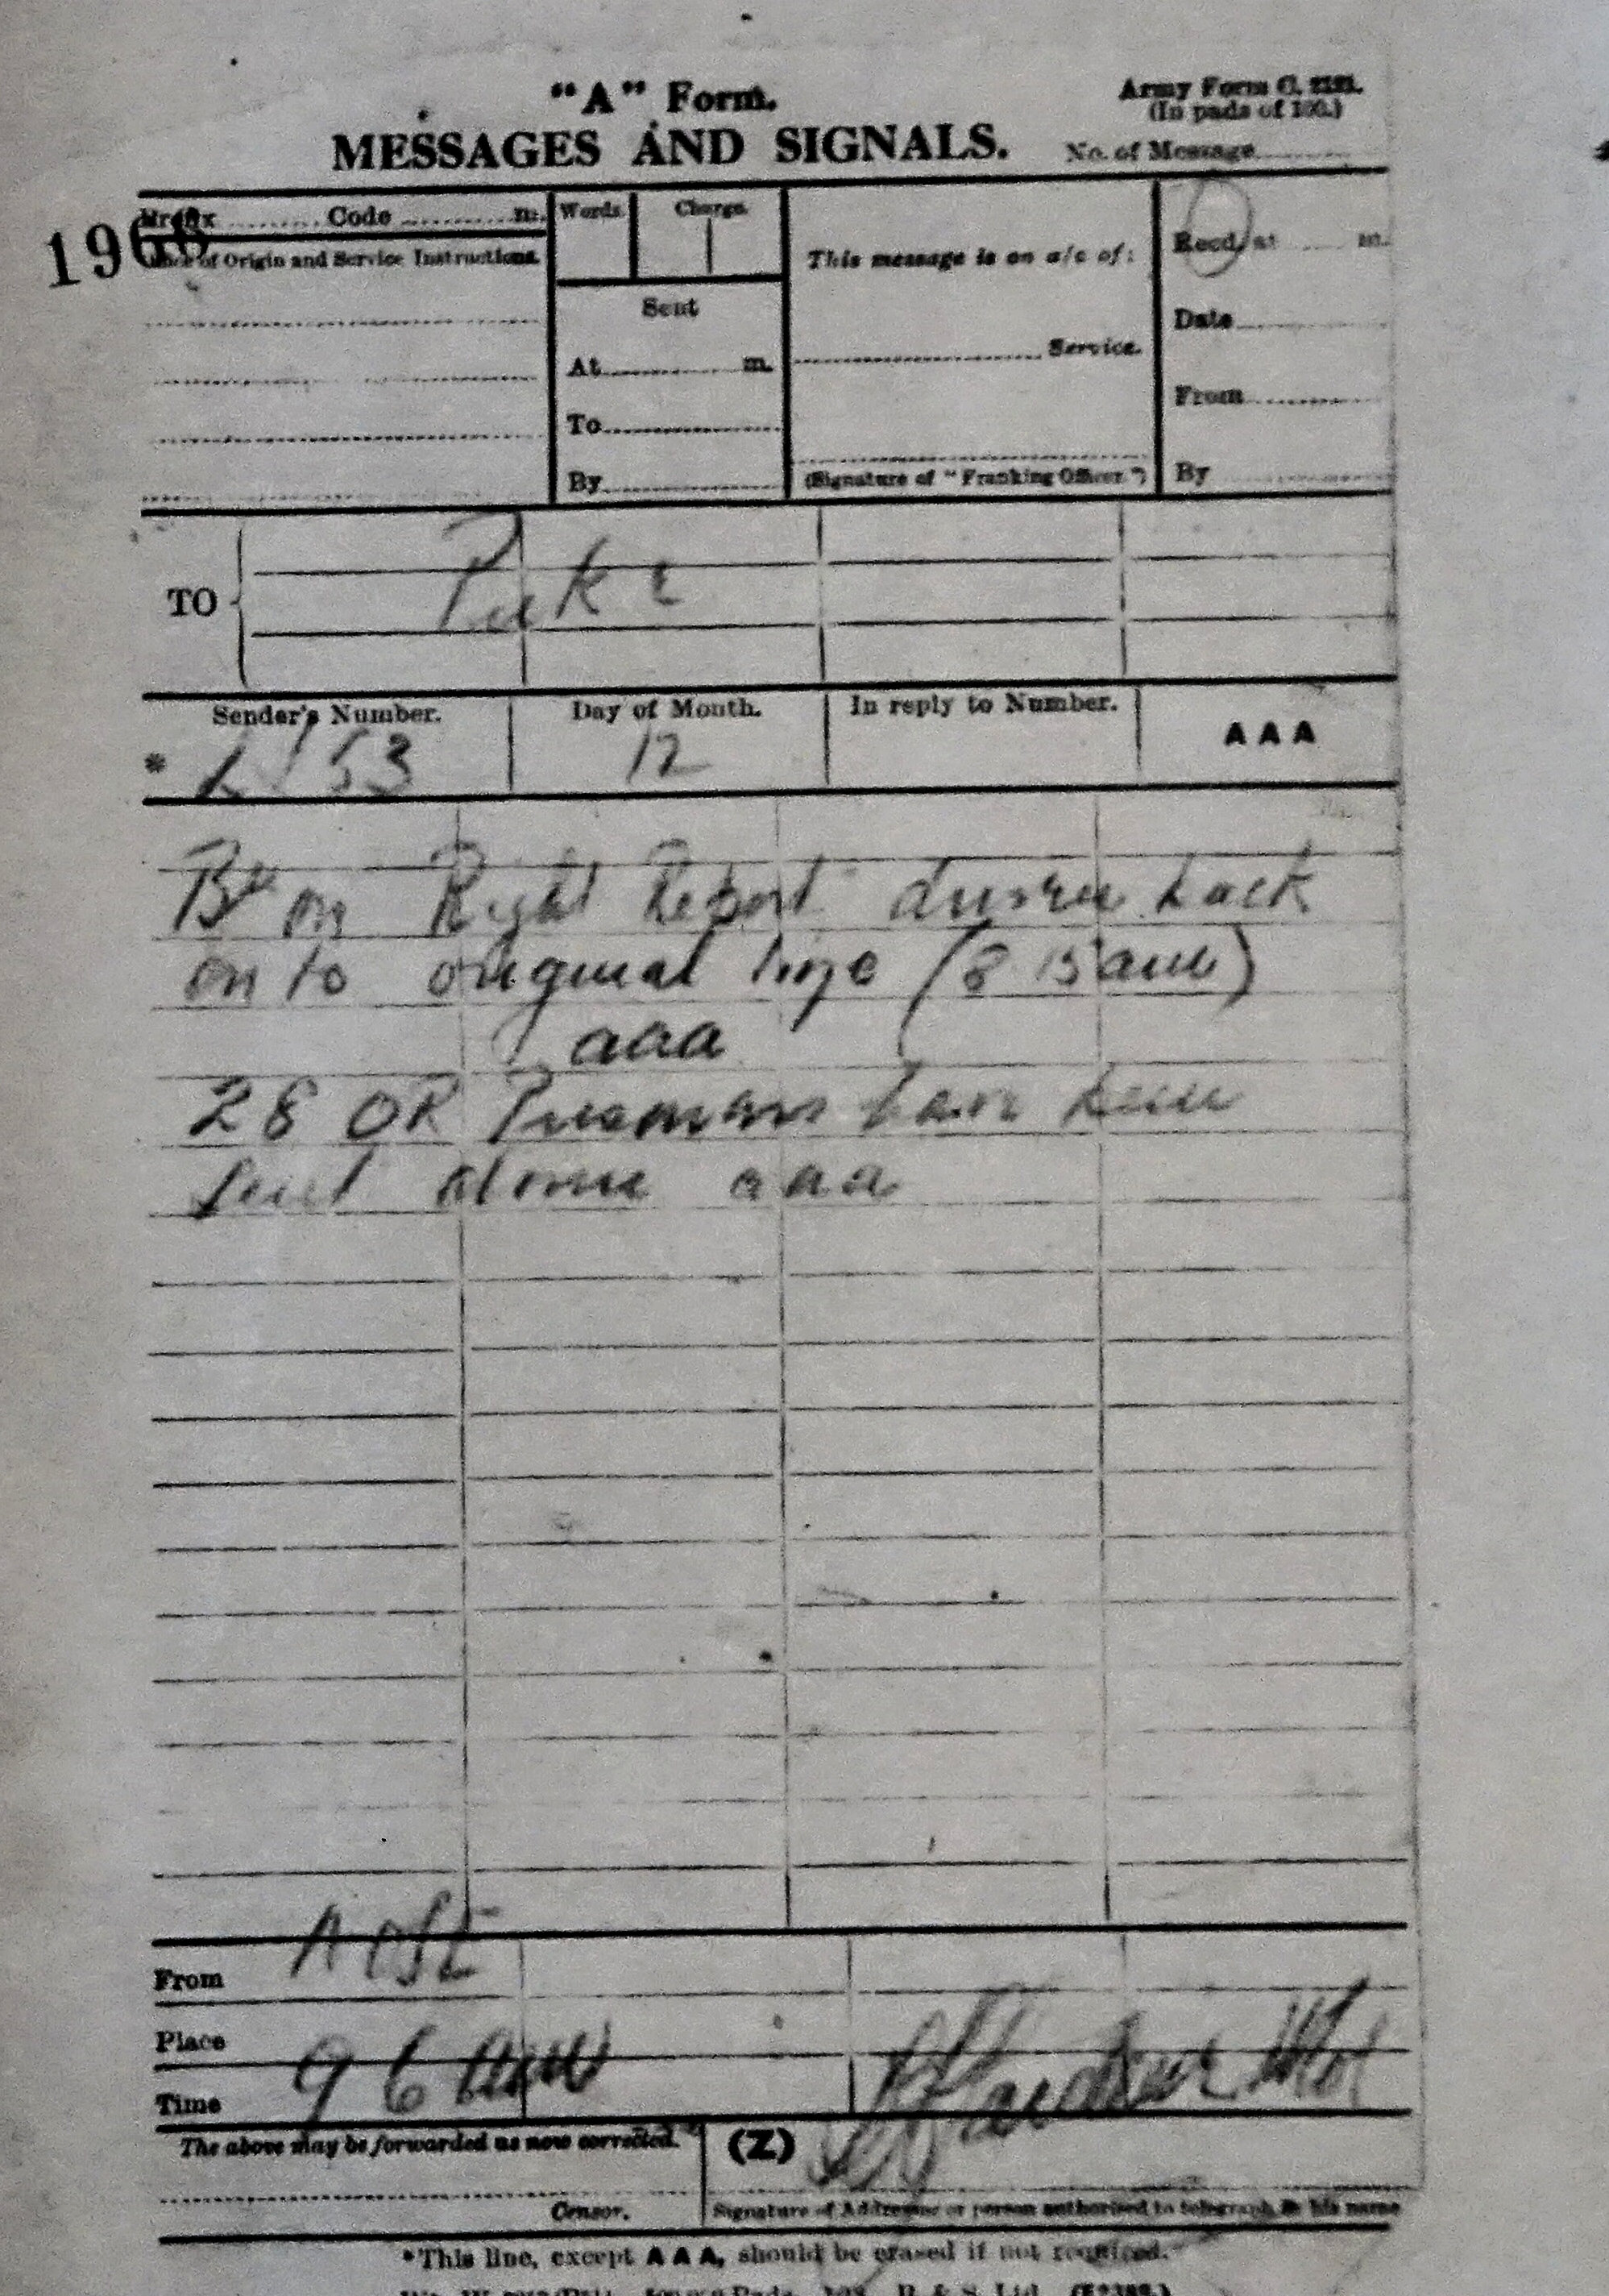 "A" Form.
Army Form C. 2121.
(In pads of 100.)
MESSAGES AND SIGNALS.
No. of Message
1966
Prefix Code m.
Words.
Charge.
Office of Origin and Service Instructions.
This message is on a/c of:
Recd. at m.
Sent
Date
At m.
Service.
From
To
By
(Signature of "Franking Officer.")
By
TO
Sender's Number.
Day of Month.
In reply to Number.
AAA
* L 153
12
Bn on Right Report driven back
on to original line (8 15 am)
aaa
28 OR Prisoners have been
sent down aaa
From
Place
Time
9 6 am
The above may be forwarded as now corrected.
(Z)
Censor.
Signature of Addressor or person authorised to telegraph in his name
*This line, except AAA, should be erased if not required.